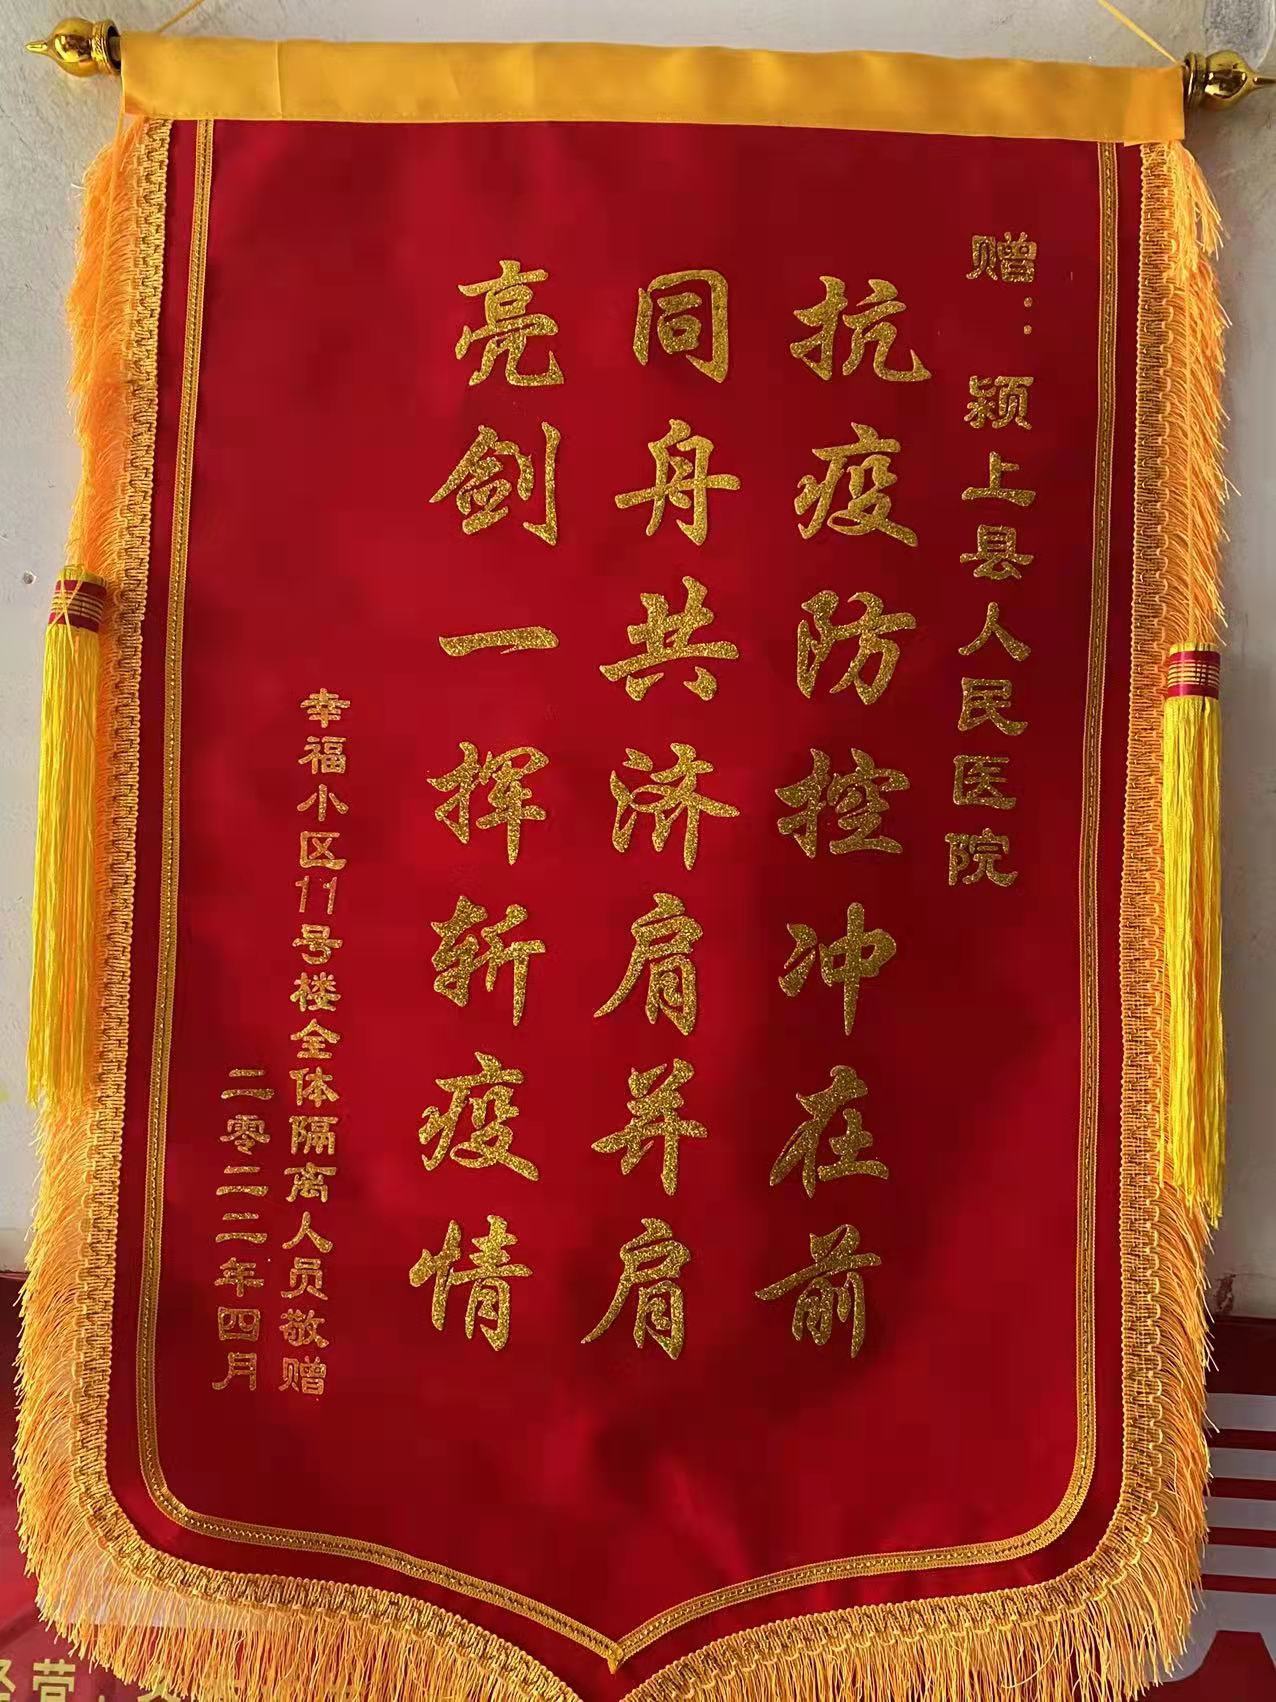 赠：颍上县人民医院
抗疫防控冲在前
同舟共济肩并肩
亮剑一挥斩疫情
幸福小区11号楼全体隔离人员敬赠
二零二二年四月